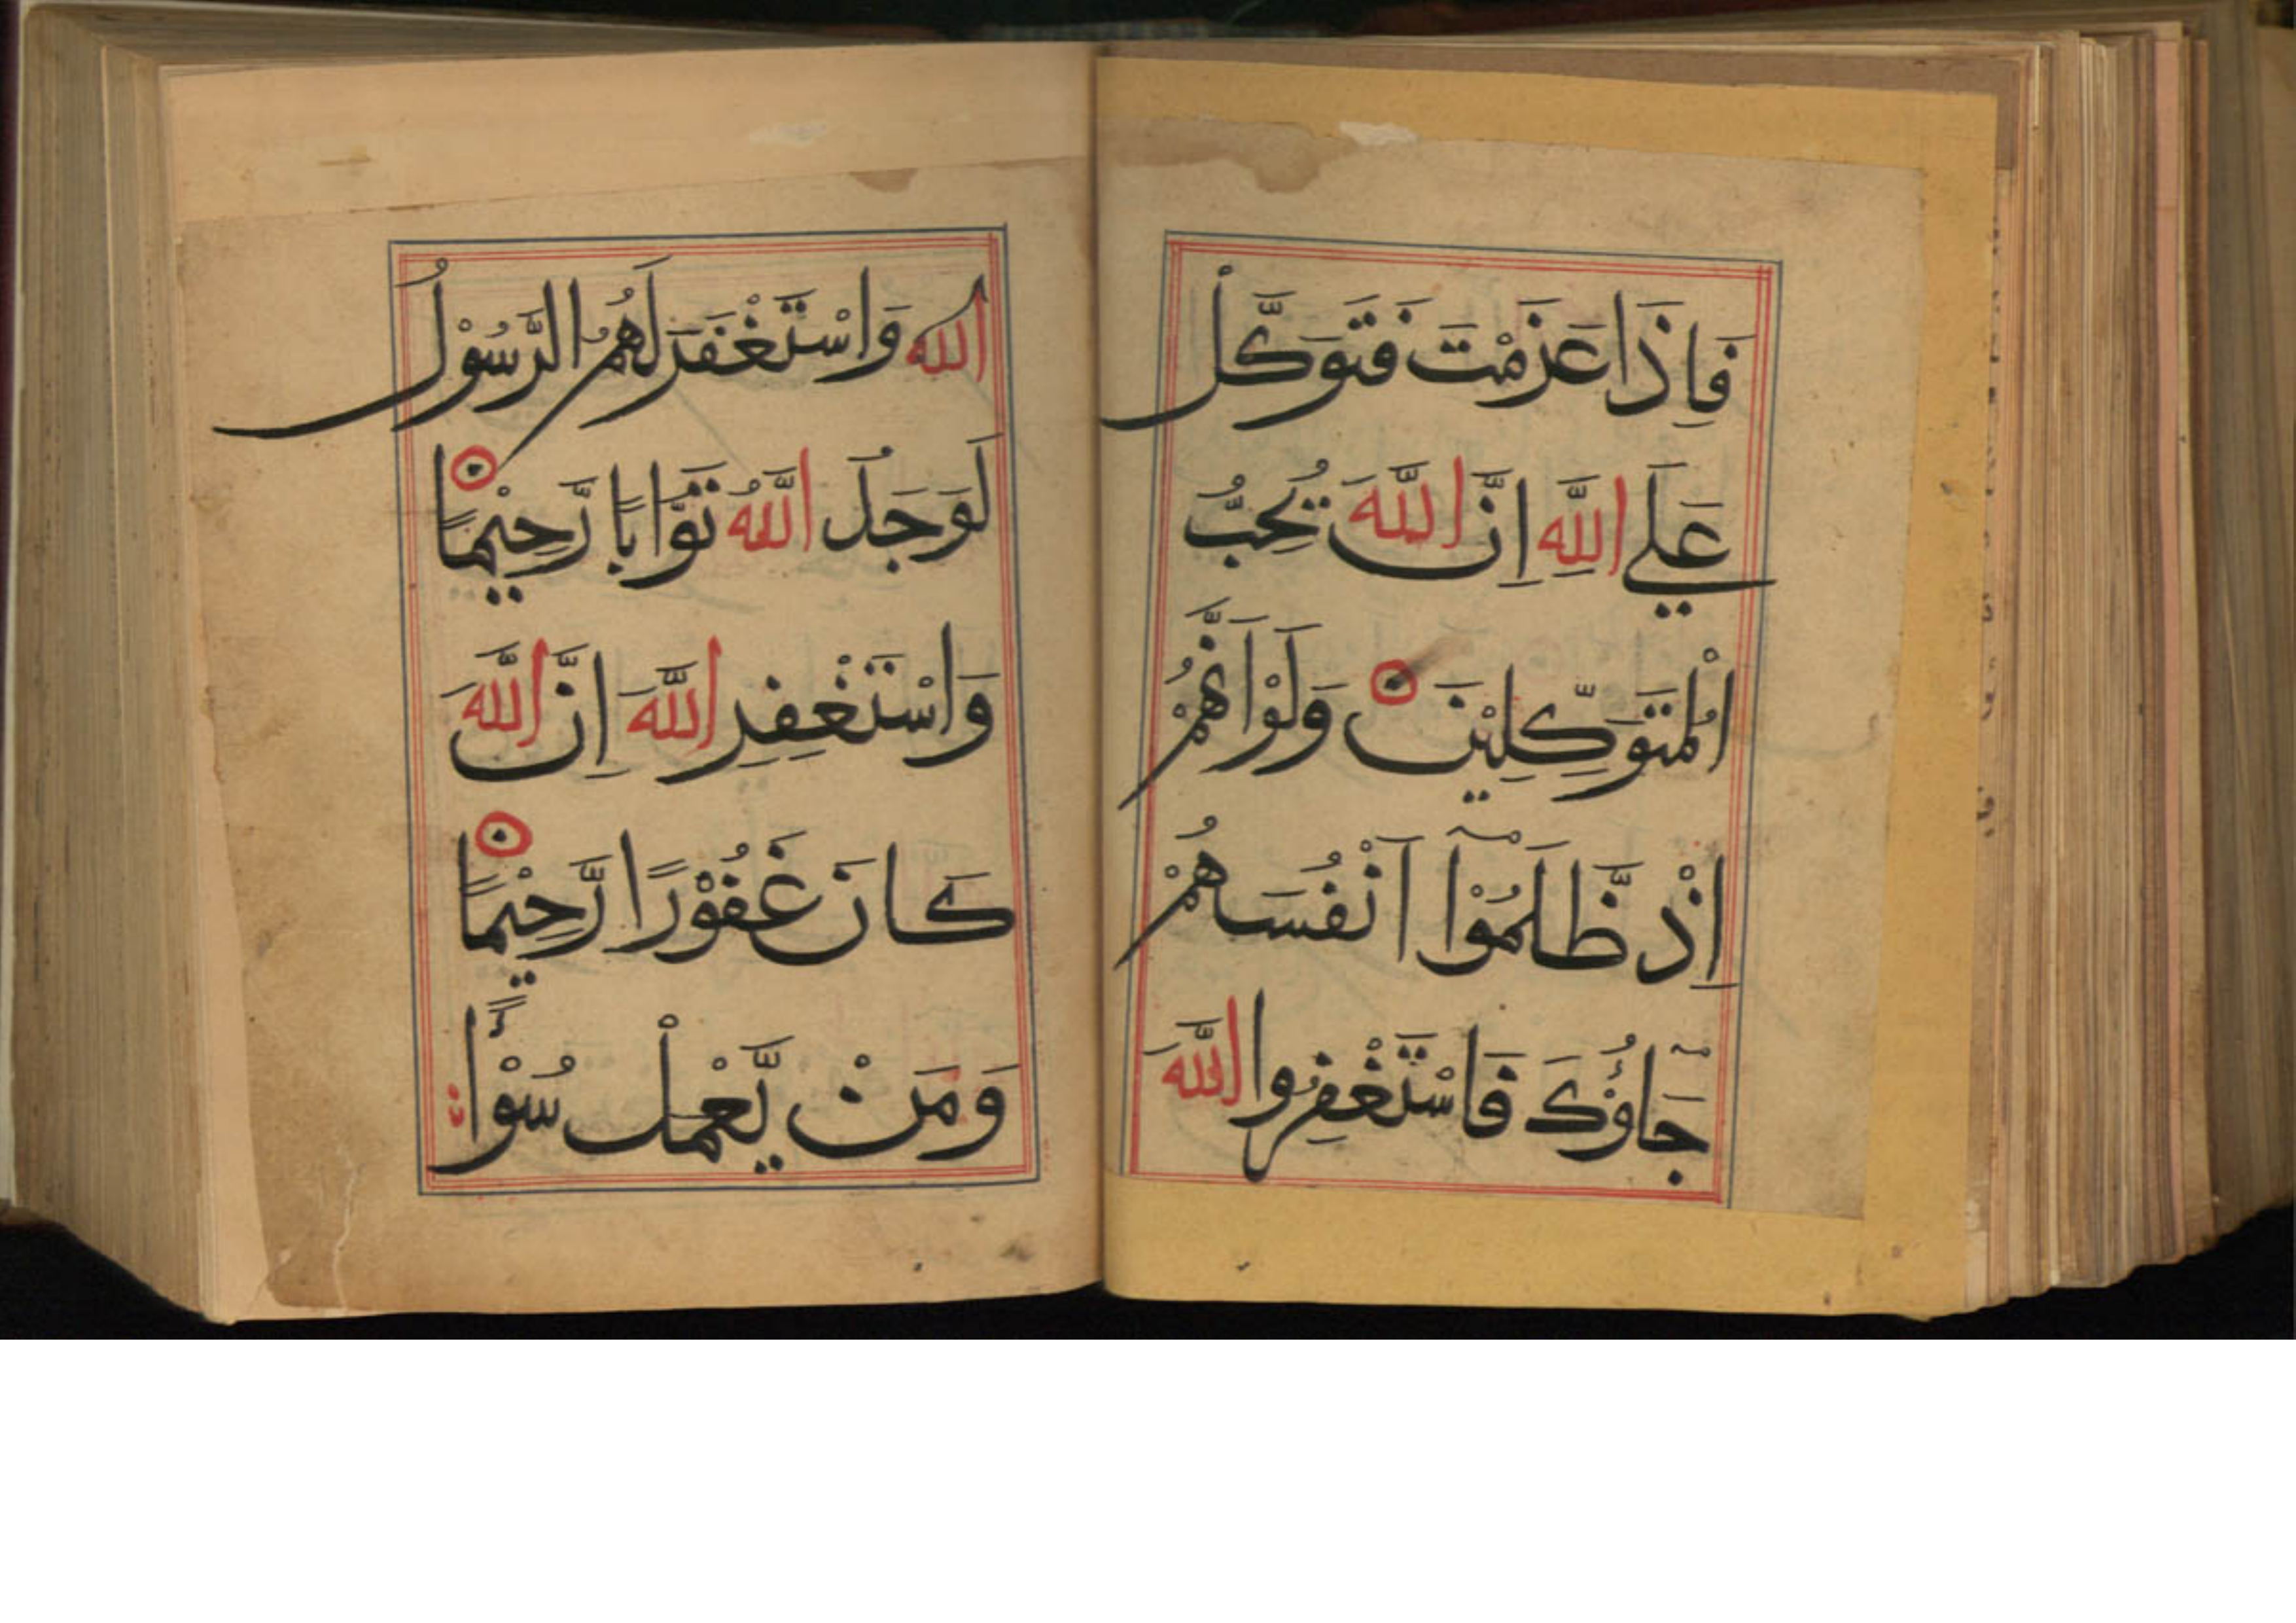 فَاِذَا عَزَمْتَ فَتَوَكَّلْ
عَلَي اللّٰهِ اِنَّ اللّٰهَ يُحِبُّ
الْمُتَوَكِّلِيْنَ وَلَوْ اَنَّهُمْ
اِذْ ظَّلَمُوْٓا اَنْفُسَهُمْ
جَآؤُكَ فَاسْتَغْفِرُوا اللّٰهَ
اللّٰه وَاسْتَغْفَرَ لَهُمُ الرَّسُوْلُ
لَوَجَدُ اللّٰهُ تَوَّابًا رَّحِيْمًا
وَاسْتَغْفِرِ اللّٰهَ اِنَّ اللّٰهَ
كَانَ غَفُوْرًا رَّحِيْمًا
وَمَنْ يَّعْمَلْ سُوْأً